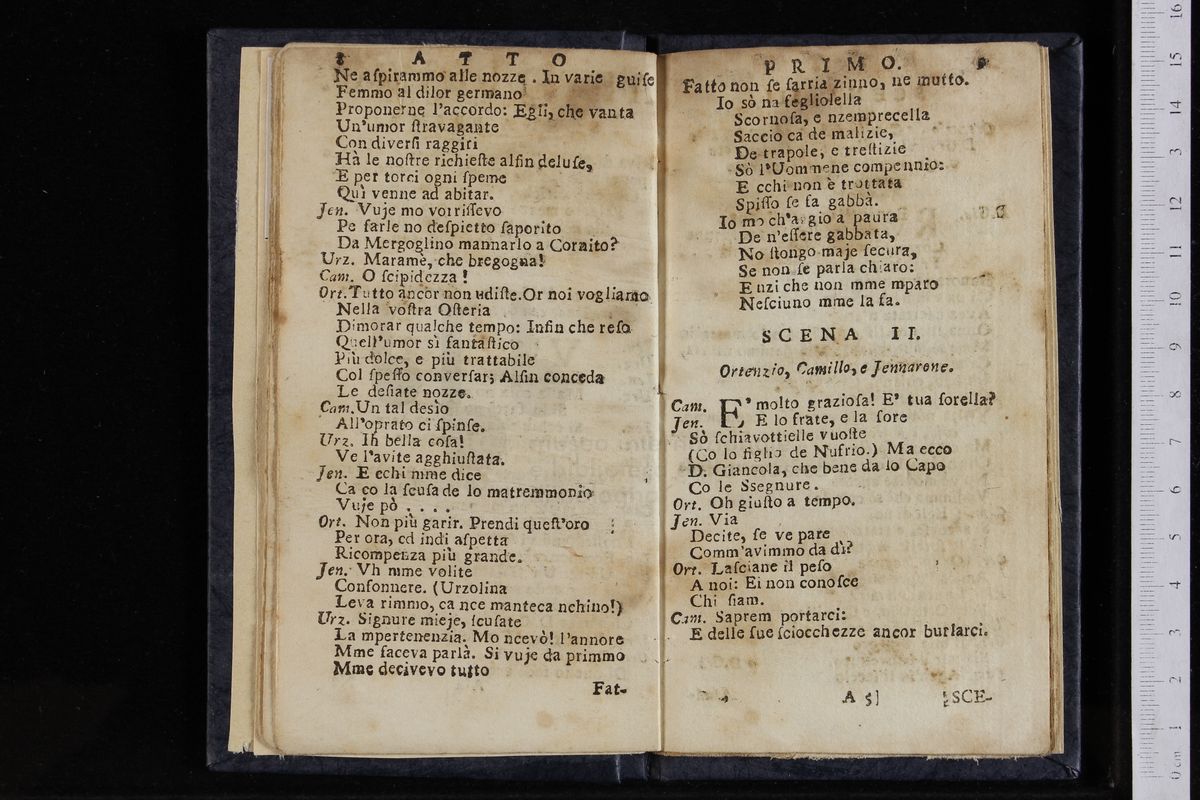 8 A T T O
Ne aſpirammo alle nozze . In varie guiſe
Femmo al dilor germano
Proponerne l'accordo: Egli, che vanta
Un'umor ſtravagante
Con diverſi raggiri
Hà le noſtre richieſte alfin deluſe,
E per torci ogni ſpeme
Quì venne ad abitar.
Jen. Vuje mo vorriſſevo
Pe farle no deſpietto ſaporito
Da Mergoglino mannarlo a Coraito?
Urz. Maramè, che bregogna!
Cam. O ſcipidezza !
Ort. Tutto ancor non udiſte. Or noi vogliamo
Nella voſtra Oſteria
Dimorar qualche tempo: Infin che reſo
Quell'umor sì fantaſtico
Più dolce, e più trattabile
Col ſpeſſo converſar; Alfin conceda
Le deſiate nozze.
Cam. Un tal desìo
All'oprato ci ſpinſe.
Urz. Ih bella coſa!
Ve l'avite agghiuſtata.
Jen. E cchi mme dice
Ca co la ſcuſa de lo matremmonio
Vuje pò . . . .
Ort. Non più garir. Prendi queſt'oro
Per ora, ed indi aſpetta
Ricompenza più grande.
Jen. Vh mme volite
Confonnere. (Urzolina
Leva rimmo, ca nce manteca nchino!)
Urz. Signure mieje, ſcuſate
La mpertenenzia. Mo ncevò! l'annore
Mme faceva parlà. Si vuje da primmo
Mme decivevo tutto
Fat-
P R I M O. 9
Fatto non ſe ſarria zinno, ne mutto.
Io sò na fegliolella
Scornoſa, e nzemprecella
Saccio ca de malizie,
De trapole, e treſtizie
Sò l'Uommene compennio:
E cchi non è trottata
Spiſſo ſe fa gabbà.
Io mo ch'aggio a paura
De n'eſſere gabbata,
No ſtongo maje ſecura,
Se non ſe parla chiaro:
E nzi che non mme mparo
Neſciuno mme la fa.
SCENA II.
Ortenzio, Camillo, e Jennarone.
Cam. E' molto grazioſa! E' tua ſorella?
Jen. E lo frate, e la ſore
Sò ſchiavottielle vuoſte
(Co lo figlio de Nufrio.) Ma ecco
D. Giancola, che bene da lo Capo
Co le Ssegnure.
Ort. Oh giuſto a tempo.
Jen. Via
Decite, ſe ve pare
Comm'avimmo da dì?
Ort. Laſciane il peſo
A noi: Ei non conoſce
Chi ſiam.
Cam. Saprem portarci:
E delle ſue ſciocchezze ancor burlarci.
A 5 SCE-